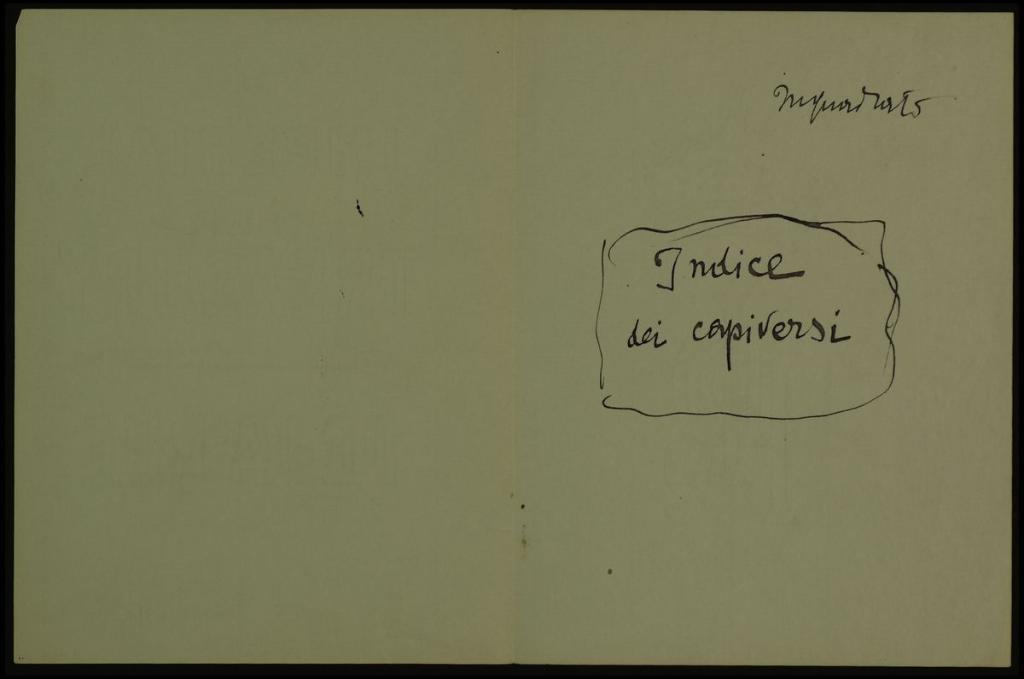 Inquadrato
Indice
dei capiversi